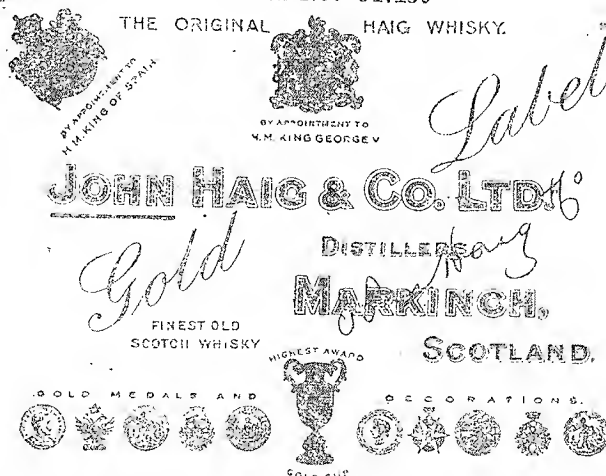 THE ORIGINAL HAIG WHISKY.
BY APPOINTMENT TO
H.M. KING OF SPAIN.
BY APPOINTMENT TO
H.M. KING GEORGE V
Label
JOHN HAIG & CO. LTD.
DISTILLERS
Gold
Haig
MARKINCH,
FINEST OLD
SCOTCH WHISKY
SCOTLAND.
HIGHEST AWARD
GOLD MEDALS AND DECORATIONS.
GOLD CUP